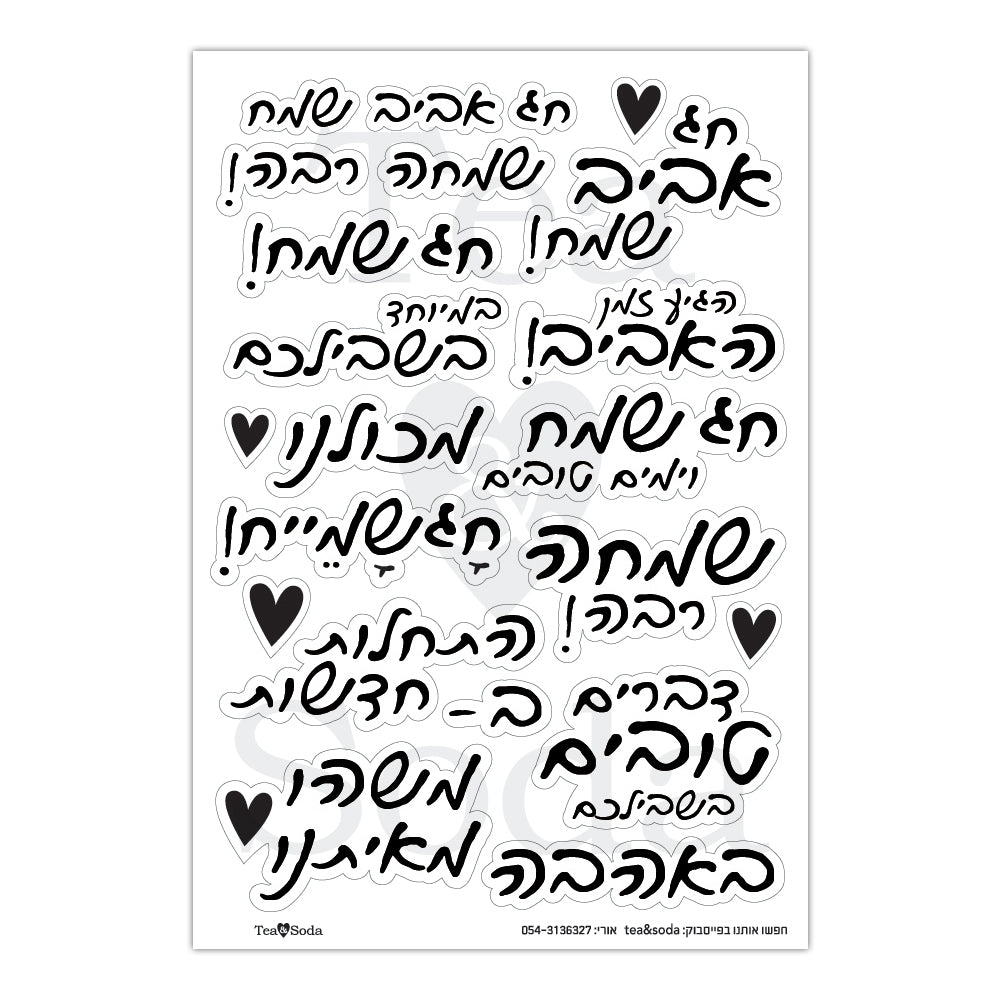 חג אביב שמח
חג
אביב
שמח!
שמחה רבה!
חג שמח!
הגיע זמן
האביב!
במיוחד
בשבילכם
חג שמח
וימים טובים
מכולנו
שמחה
רבה!
חַג שָמֵייח!
התחלות
ב- חדשות
דברים
טובים
בשבילכם
משהו
מאיתנו
באהבה
חפשו אותנו בפייסבוק: tea&soda אורי: 054-3136327
Tea&Soda
Tea
&
Soda